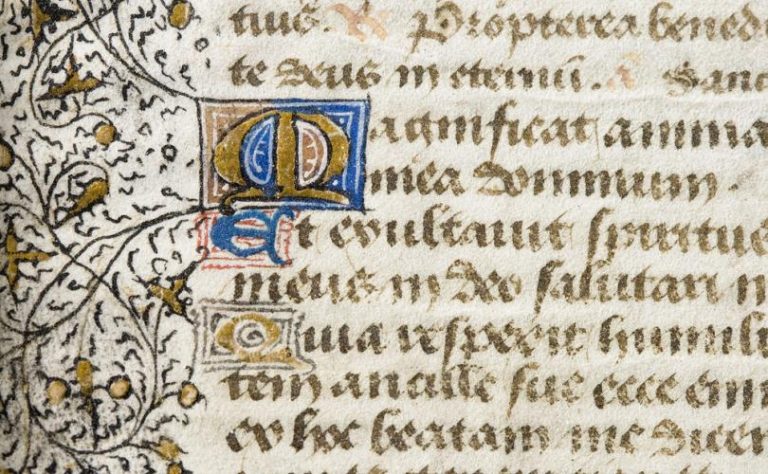 tius. Propterea bened
te deus in eternū. Sanc
Magnificat anima
mea dominum.
Et exultauit spiritus
meus in deo salutari
Quia respexit humili
tem ancille sue ecce eni
ex hoc beatam me dicen